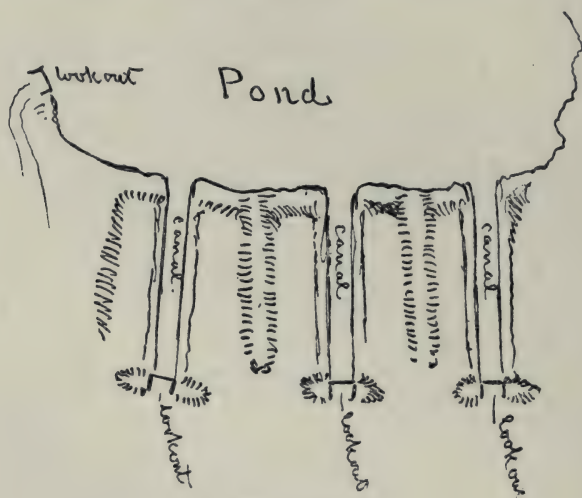 lookout
Pond
canal
canal
canal
lookout
lookout
lookout